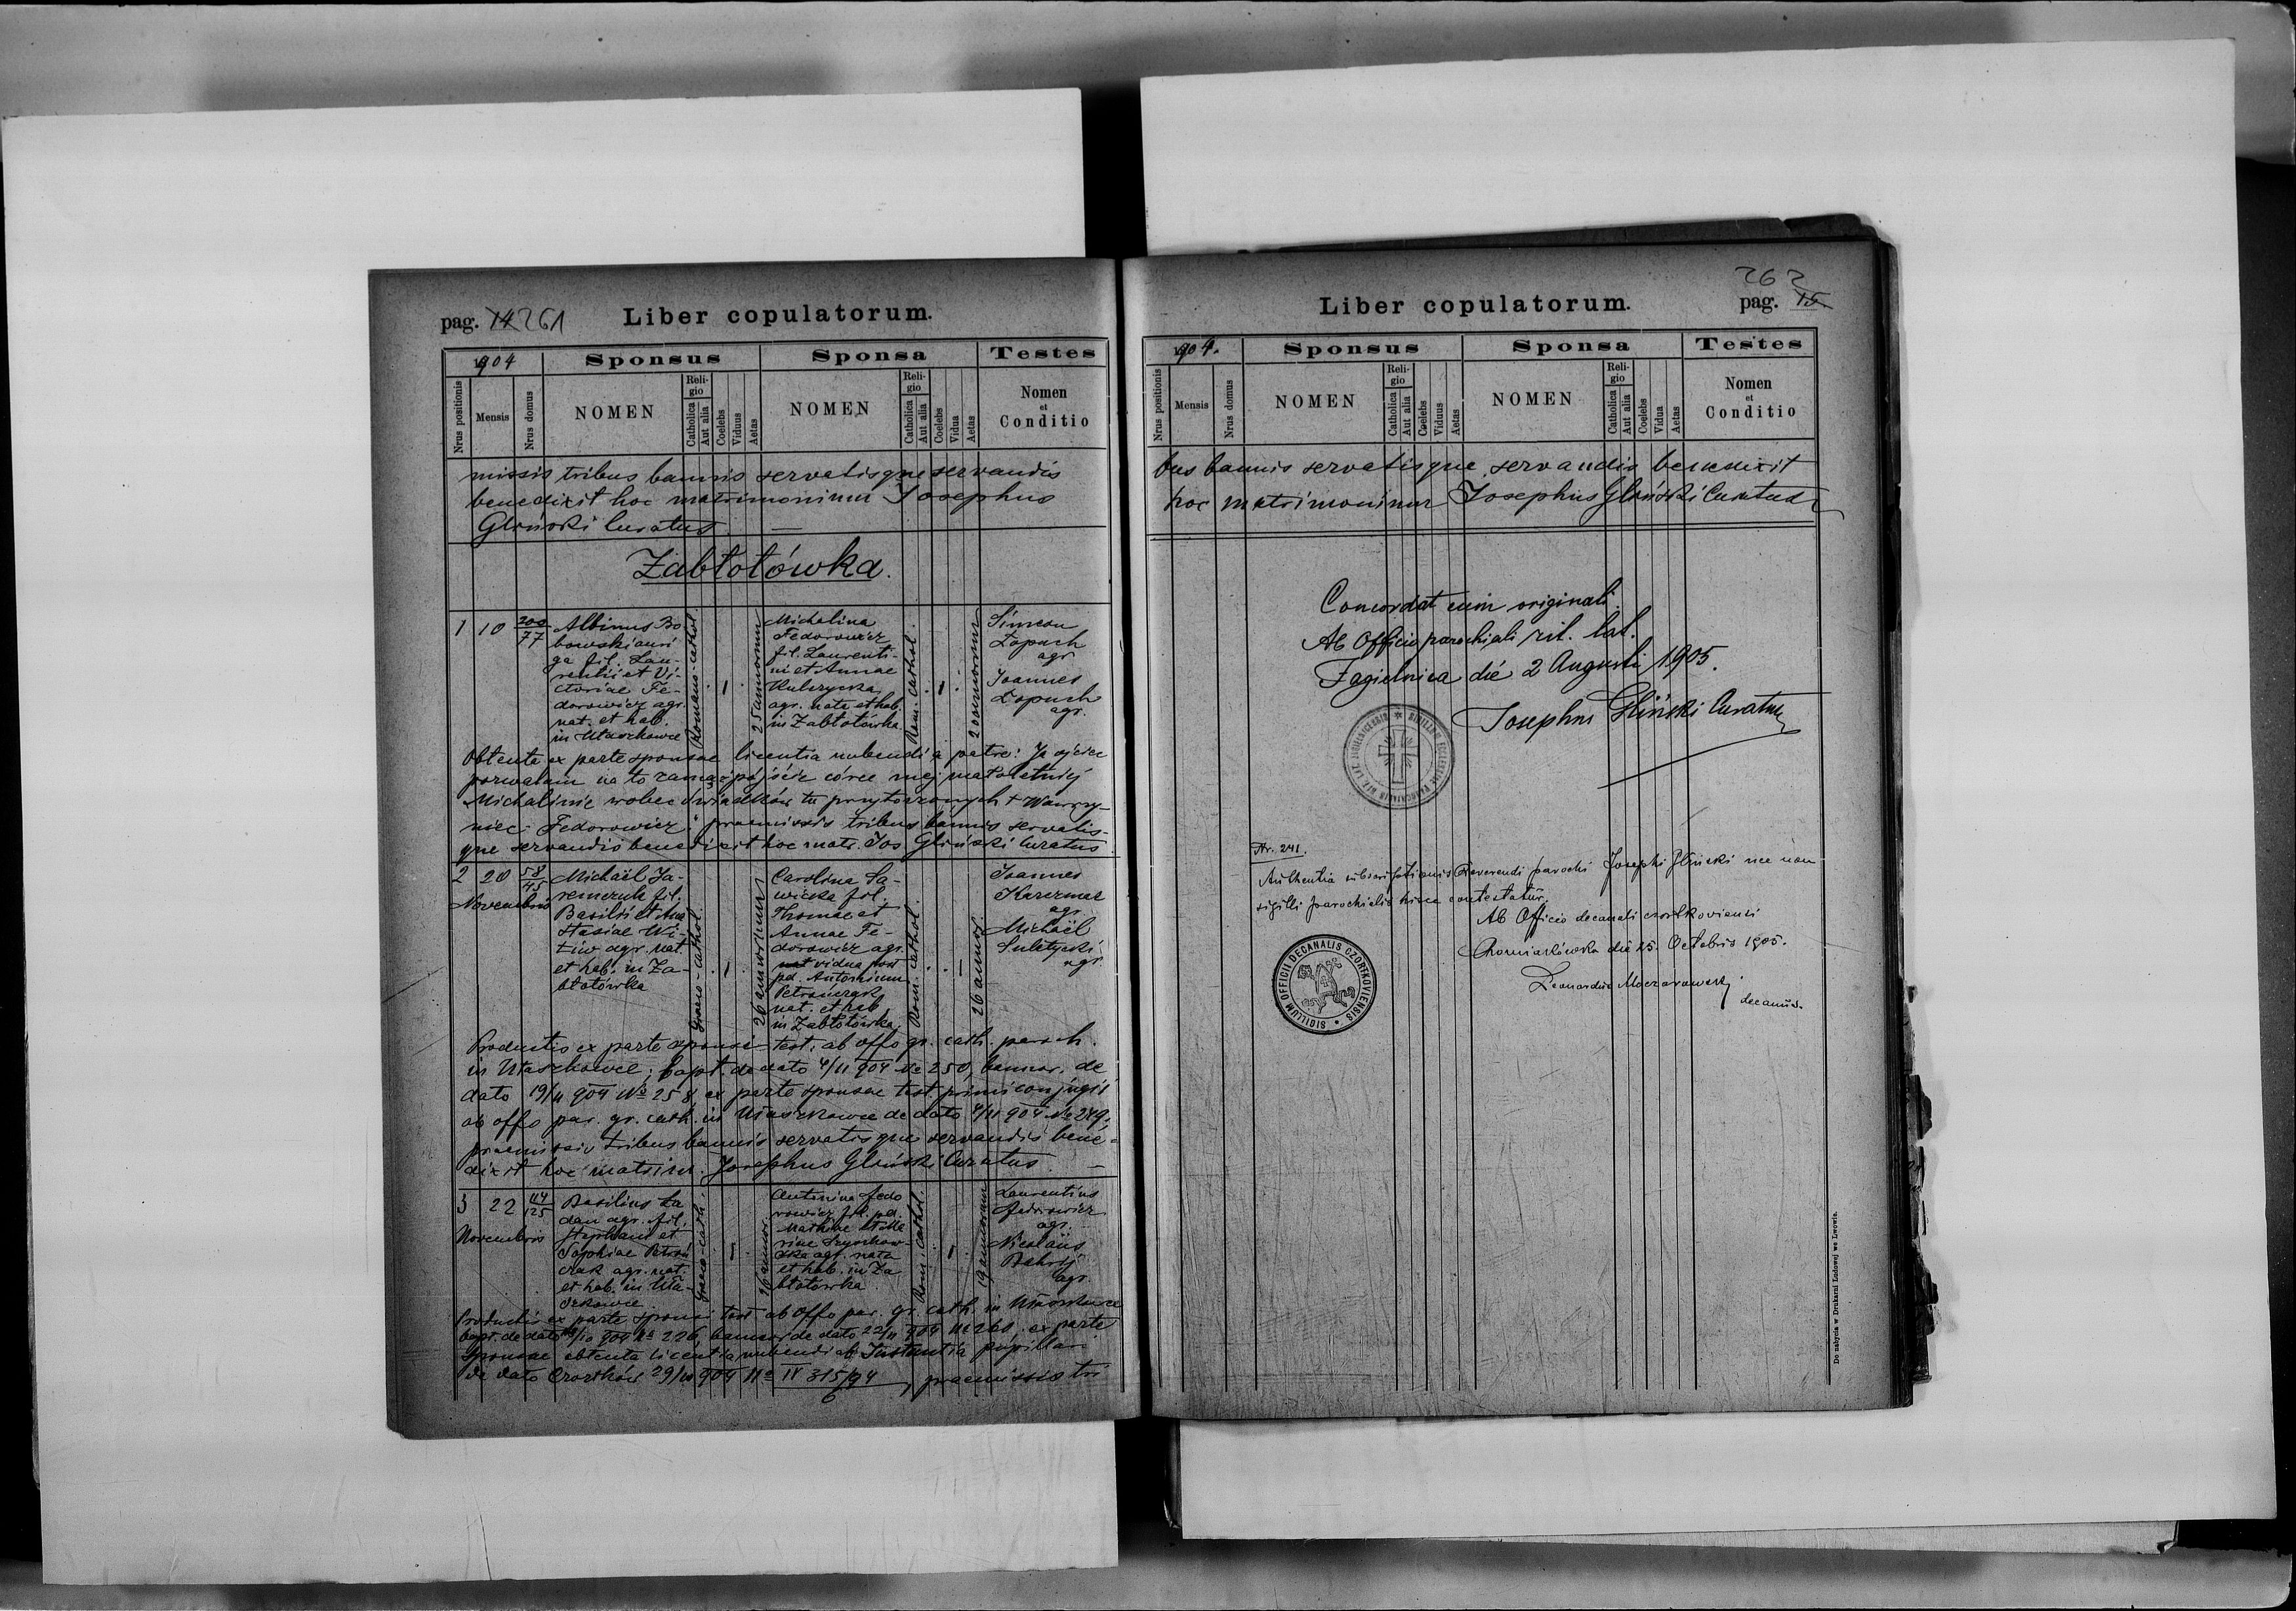 pag. 14 261
Liber copulatorum.
904
Sponsus
Sponsa
Testes
Nrus positionis
Mensis
Nrus domus
NOMEN
Religio
Catholica
Aut alia
Coelebs
Viduus
Aetas
NOMEN
Religio
Catholica
Aut alia
Coelebs
Vidua
Aetas
Nomen
et
Conditio
missis tribus bannis servatisque servandis
benedixit hoc matrimonium Josephus
Gliński Curatus
Zabłotówka.
1 10 200/77
Albinus Bo-
bowski auri
ga fil. Lau-
rentii et Vi-
ctoriae Fe-
dorowicz agr.
nat. et hab.
in Ułaszkowce
Romano-cathol.
1
25 annorum
Michalina
Fedorowicz
fil. Laurenti-
ni et Annae
Kulczycka
agr. nata et hab.
in Zabłotówka.
Rom. cathol.
1
20 annorum
Simeon
Łopuch
agr.
Joannes
Łopuch
agr.
Obtenta ex parte sponsae licentia nubendi a patre: Ja ojciec
pozwalam na to zamążpójście córce mej małoletniej
Michalinie wobec świadków tu przytoczonych + Wawrzy-
niec Fedorowicz." praemissis tribus bannis servatis-
que servandis benedixit hoc matr. Jos. Gliński Curatus
2 20 58/45
Novembris
Michaël Ja-
remczuk fil.
Basilii et Ana
stasiae Wi-
tiw agr. nat.
et hab. in Za-
błotówka
Graeco-cathol.
1
26 annorum
Carolina Sa-
wicka fil.
Thomae et
Annae Fe-
dorowicz agr.
nat vidua post
pd. Antonium
Petrowczak
nat. et hab
in Zabłotówka
Rom. cathol.
1
26 annor.
Joannes
Karermaz
agr.
Michaël
Suletycki
agr.
Productis ex parte sponsi test. ab offo gr. cath. paroch.
in Ułaszkowce; bapt. de dato 4/11 904 No 250, bannor. de
dato 19/11 904 No 258, ex parte sponsae test. primi conjugii
ab offo par. gr. cath. in Ułaszkowce de dato 4/11 904 No 249;
praemissis tribus bannis servatisque servandis bene-
dixit hoc matrim. Josephus Gliński Curatus
3 22 114/125
Novembris
Basilius Ła
dan agr. fil.
Stephani et
Sophiae Petroń
czak agr. nat.
et hab. in Uła-
szkowce
Graeco-cath.
1
26 annor.
Antonina Fedo
rowicz fil. pd.
Mathiae et Ma
riae Szyszkow-
ska agr. nata
et hab. in Za
błotówka
Rom. cathol.
1
19 annorum
Laurentius
Fedorowicz
agr.
Nicolaüs
Bahrij
agr.
Productis ex parte sponsi test. ab offo par. gr. cath. in Ułaszkowce
bapt. de dato /10 904 No 226, bannor. de dato 22/11 904 No 260. ex parte
sponsae obtenta licentia nubendi ab Instantia pupillari
de dato Czortków 29/10 904 No IV 315/94/6, praemissis tri
262
pag. 15
Liber copulatorum.
904.
Sponsus
Sponsa
Testes
Nrus positionis
Mensis
Nrus domus
NOMEN
Religio
Catholica
Aut alia
Coelebs
Viduus
Aetas
NOMEN
Religio
Catholica
Aut alia
Coelebs
Vidua
Aetas
Nomen
et
Conditio
bus bannis servatisque servandis benedixit
hoc matrimonium Josephus Gliński Curatus
Concordat cum originali.
Ab Officio parochiali rit. lat.
Jagielnica die 2 Augusti 1905.
Josephus Gliński Curatus
Nr. 241.
Authentia subscriptionis Reverendi parochi Josephi Gliński nec non
sigilli parochialis hisce contestatur.
Ab Officio decanali czortkoviensi
Chomiakówka die 25. Octobris 1905.
Leonardus Moczarowski
decanus.
SIGILLUM OFFICII DECANALIS CZORTKOVIENSIS
Do nabycia w Drukarni Ludowej we Lwowie.